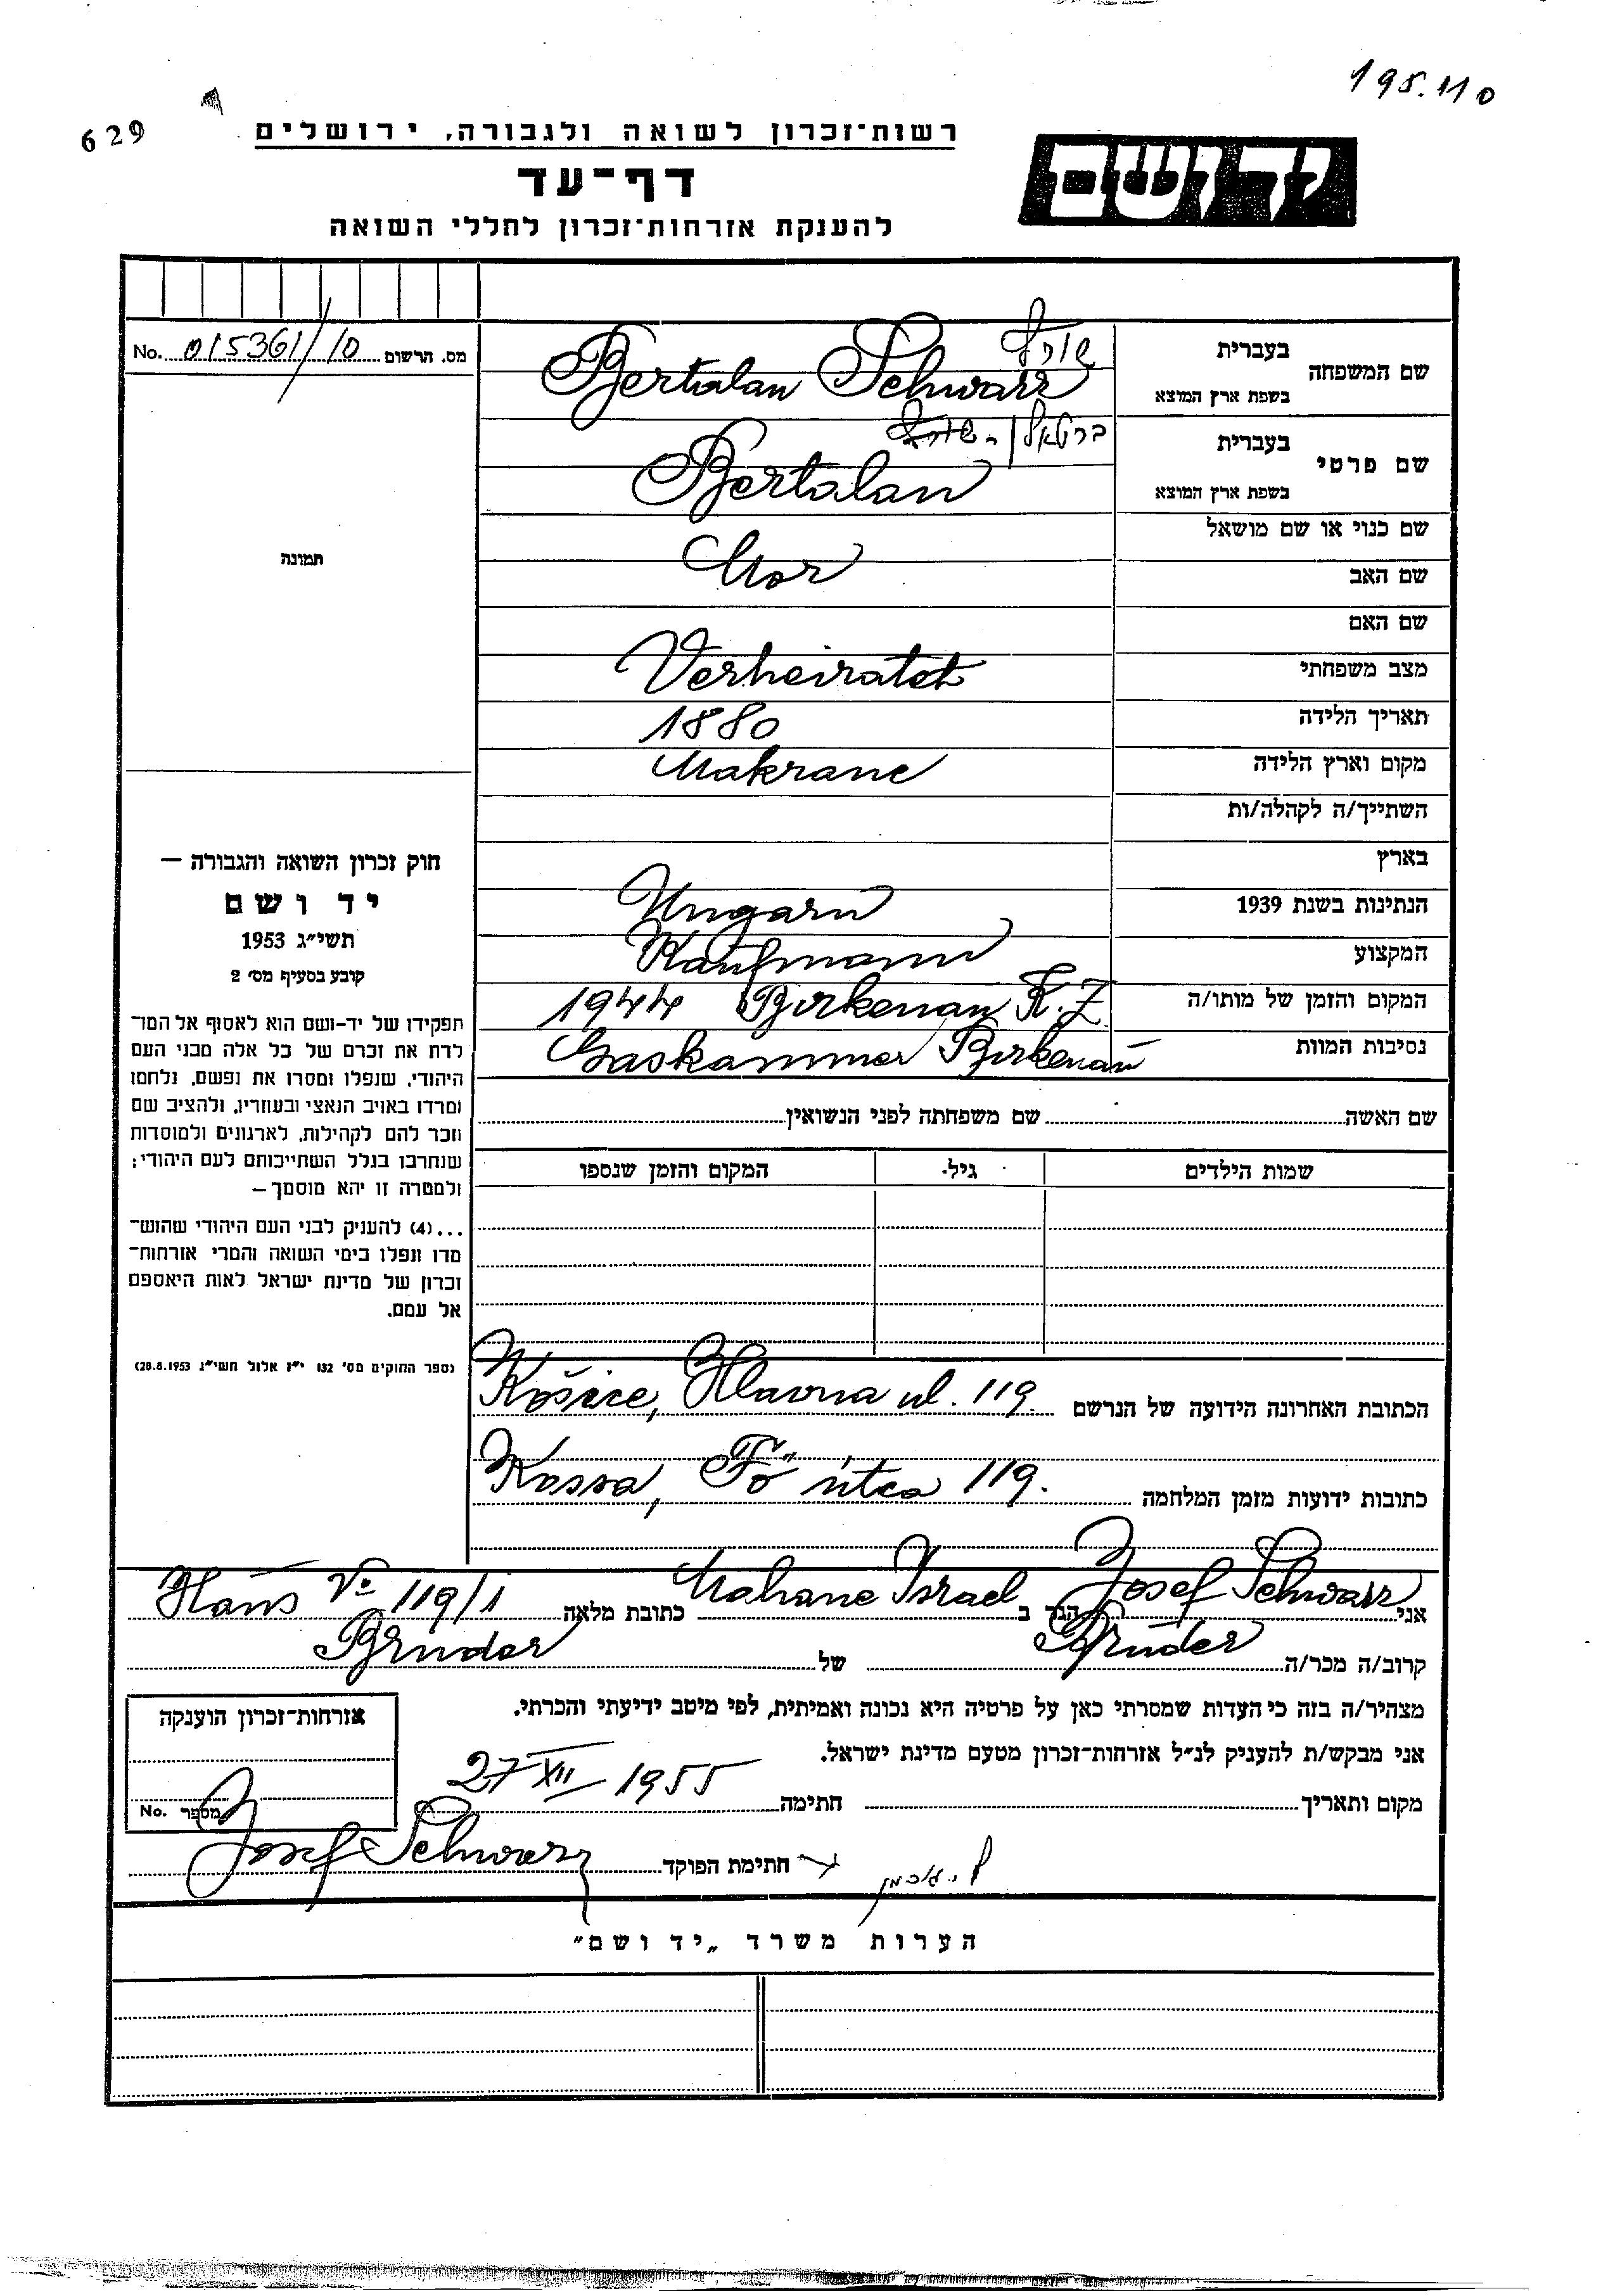 195.110
629
רשות־זכרון לשואה ולגבורה, ירושלים
יד ושם
דף־עד
להענקת אזרחות־זכרון לחללי השואה
No. 015361/10 מס. הרשום
שם המשפחה
בעברית שורץ
בשפת ארץ המוצא Bertalan Schwarz
שם פרטי
בעברית ברטאלן
בשפת ארץ המוצא Bertalan
שם כנוי או שם מושאל
שם האב Mor
שם האם
מצב משפחתי Verheiratet
תאריך הלידה 1880
מקום וארץ הלידה Makranc
השתייך/ה לקהלה/ות
בארץ
הנתינות בשנת 1939 Ungarn
המקצוע Kaufmann
המקום והזמן של מותו/ה 1944 Birkenau K.Z
נסיבות המוות Gaskammer Birkenau
תמונה
חוק זכרון השואה והגבורה —
יד ושם
תשי״ג 1953
קובע בסעיף מס׳ 2
תפקידו של יד-ושם הוא לאסוף אל המו־
לדת את זכרם של כל אלה מבני העם
היהודי, שנפלו ומסרו את נפשם, נלחמו
ומרדו באויב הנאצי ובעוזריו, ולהציב שם
וזכר להם לקהילות, לארגונים ולמוסדות
שנחרבו בגלל השתייכותם לעם היהודי;
ולמטרה זו יהא מוסמך —
...(4) להעניק לבני העם היהודי שהוש־
מדו ונפלו בימי השואה והמרי אזרחות־
זכרון של מדינת ישראל לאות היאספם
אל עמם.
(ספר החוקים מס׳ 132 י״ז אלול תשי״ג 28.8.1953)
שם האשה שם משפחתה לפני הנשואין
שמות הילדים גיל. המקום והזמן שנספו
הכתובת האחרונה הידועה של הנרשם Košice, Hlavna ul. 119.
כתובות ידועות מזמן המלחמה Kassa, Fő utca 119.
אני Josef Schwarz הגר ב Mahane Israel כתובת מלאה Haus No 119/1
קרוב/ה מכר/ה Bruder של Bruder
מצהיר/ה בזה כי העדות שמסרתי כאן על פרטיה היא נכונה ואמיתית, לפי מיטב ידיעתי והכרתי.
אני מבקש/ת להעניק לנ״ל אזרחות־זכרון מטעם מדינת ישראל.
מקום ותאריך חתימה 27 XII 1955
חתימת הפוקד Josef Schwarz
אזרחות־זכרון הוענקה
No. מספר
הערות משרד „יד ושם״